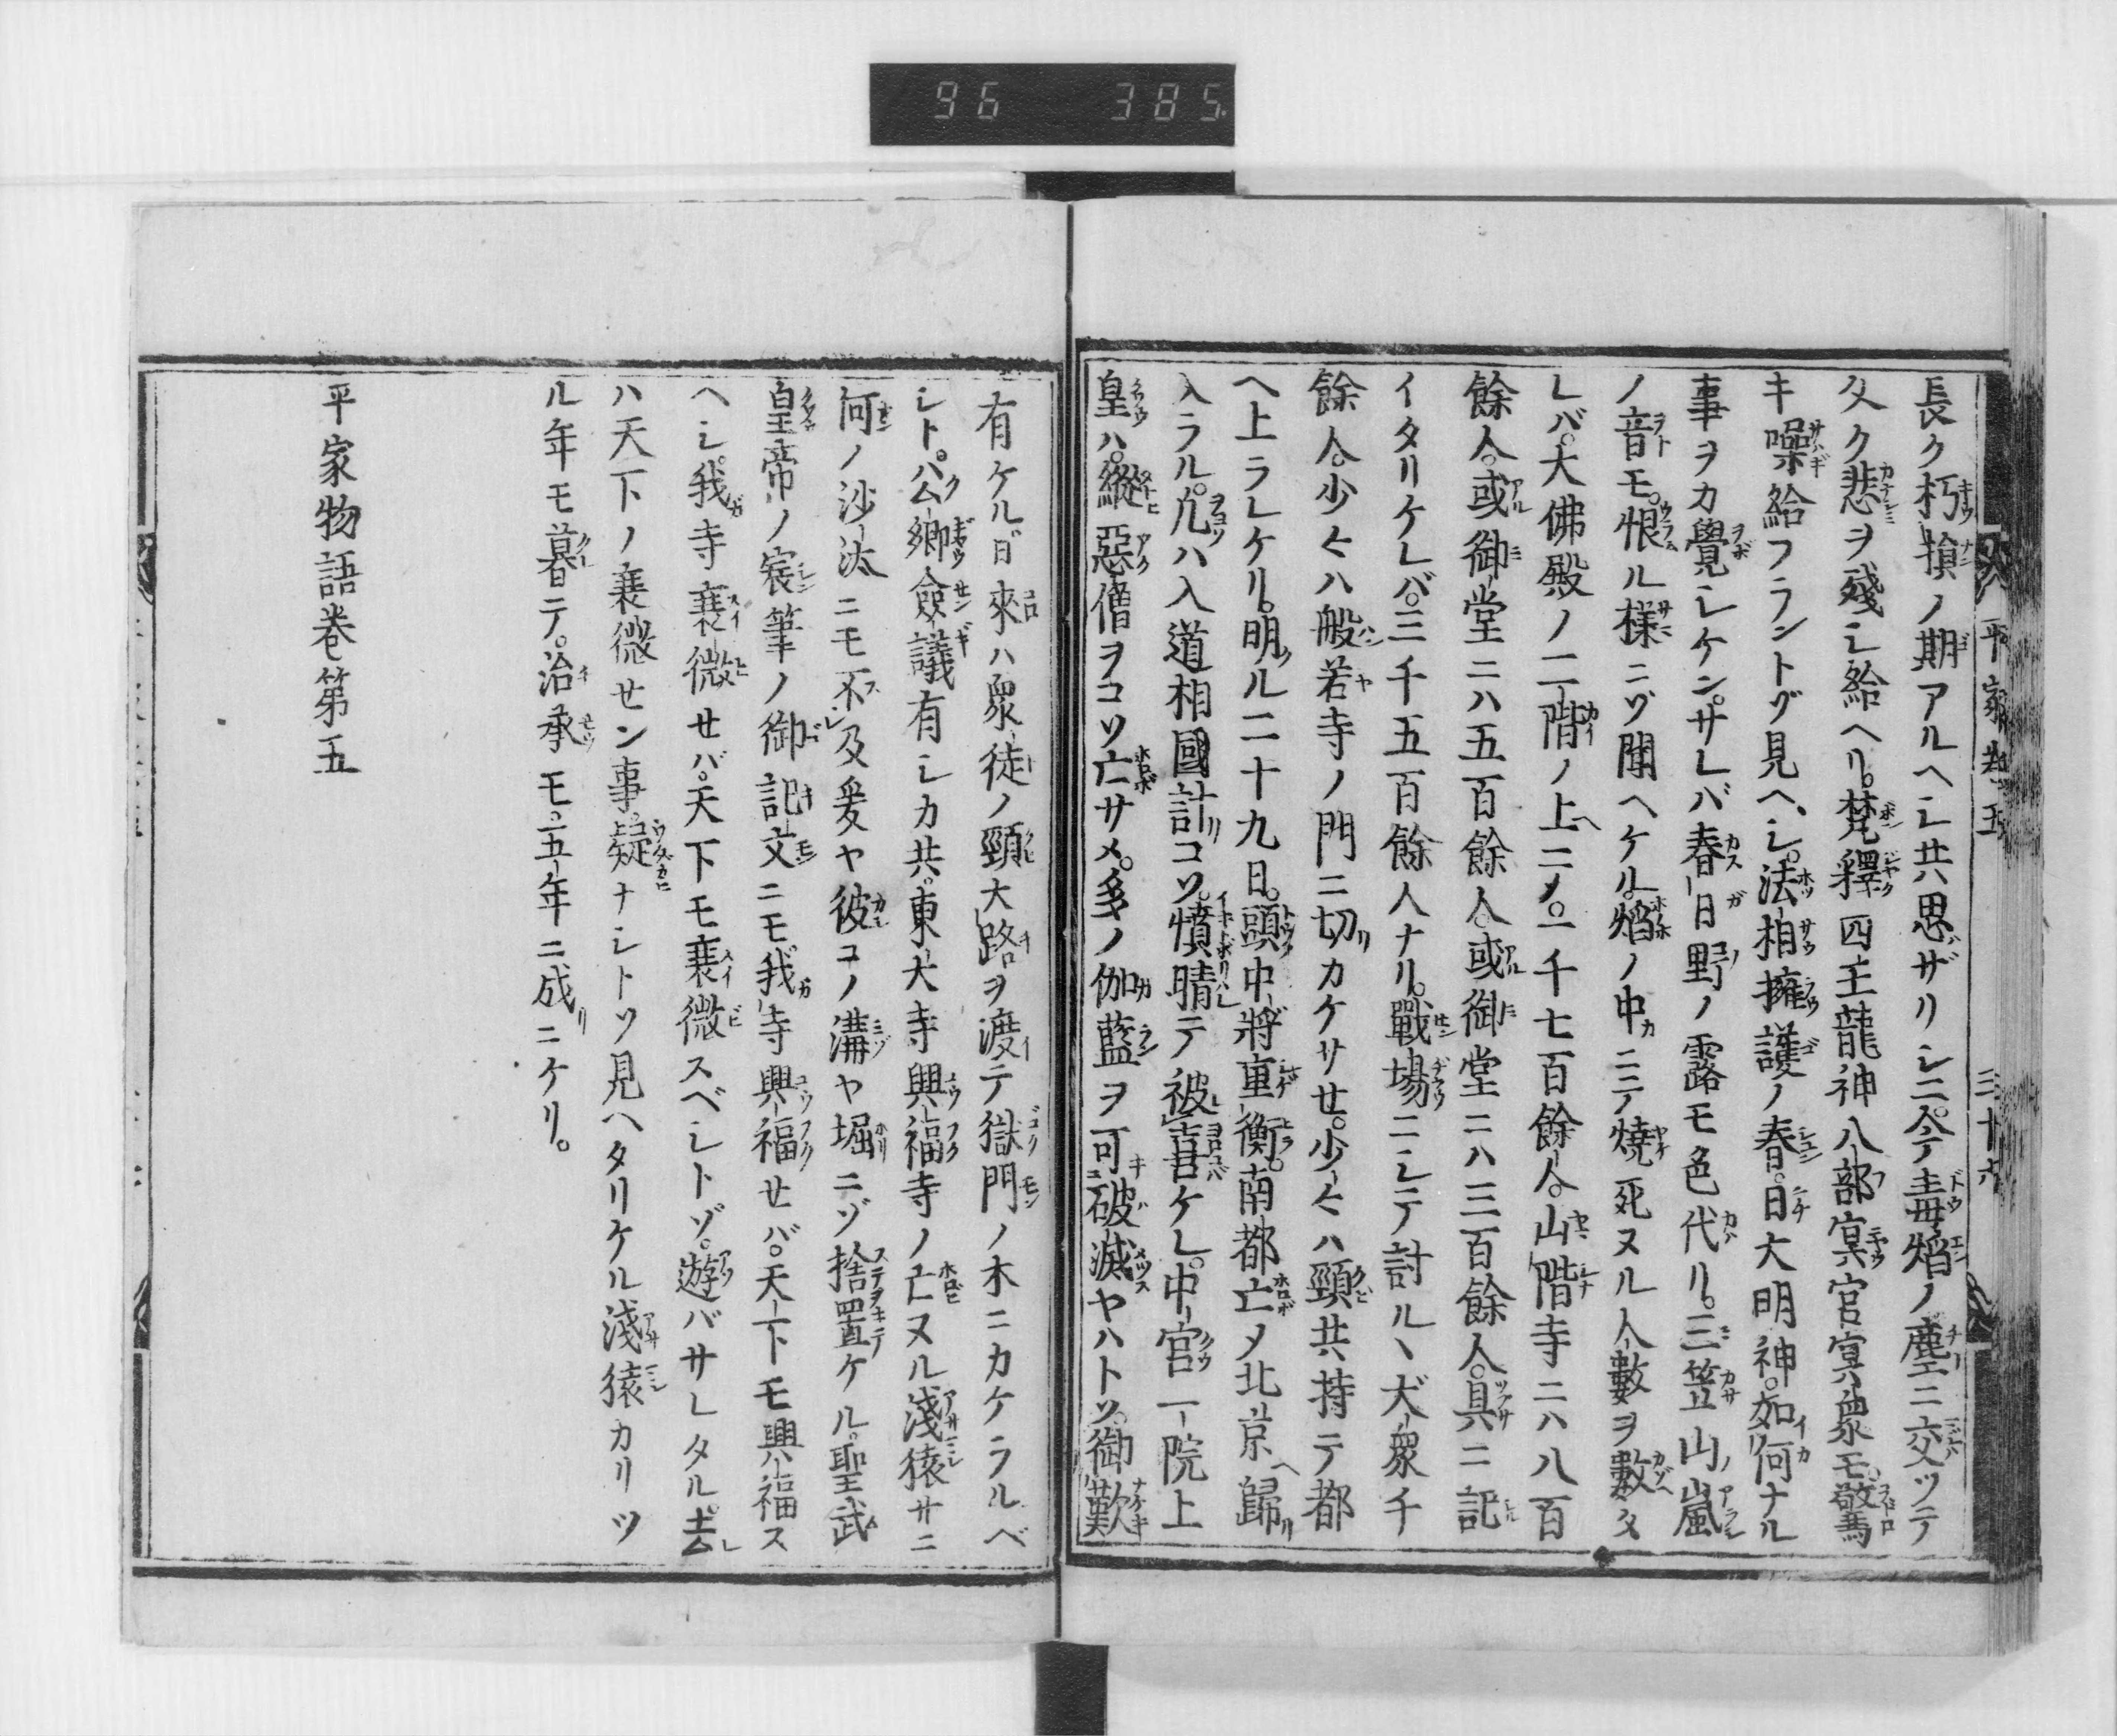 96 385
長ク朽損ノ期アルヘシ共思ザリシニ。今テ毒焔ノ塵ニ交ツテ
久ク悲ヲ殘シ給ヘリ。梵釋四王龍神八部冥官冥衆モ。驚
キ噪給フラントゾ見ヘシ。法相擁護ノ春日大明神。如何ナル
事ヲカ覺シケン。サレバ春日野ノ露モ色代リ。三笠山嵐
ノ音モ。恨ル樣ニゾ聞ヘケル。焔ノ中ニテ燒死ヌル人數ヲ數タ
レバ。大佛殿ノ二階ノ上ニメ。一千七百餘人。山階寺ニハ八百
餘人。或御堂ニハ五百餘人。或御堂ニハ三百餘人。具ニ記
イタリケレバ。三千五百餘人ナリ。戰場ニシテ討ルヽ大衆千
餘人。少々ハ般若寺ノ門ニ切カケサせ。少々ハ頸共持テ都
ヘ上ラレケリ。明ル二十九日。頭中將重衡。南都亡メ北京ヘ歸
入ラル。凡ハ入道相國計コソ。憤晴テ被喜ケレ。中宮一院上
皇ハ。縱惡僧ヲコソ亡サメ。多ノ伽藍ヲ可破滅ヤハトソ。御歎
平家物語卷五 三十六
有ケル。日來ハ衆徒ノ頸大路ヲ渡テ獄門ノ木ニカケラルベ
シト。公卿僉議有シカ共。東大寺興福寺ノ亡ヌル淺猿サニ
何ノ沙汰ニモ不及爰ヤ彼コノ溝ヤ堀ニゾ捨置ケル。聖武
皇帝ノ宸筆ノ御記文ニモ我寺興福せバ。天下モ興福ス
ヘシ。我寺衰微せバ。天下モ衰微スベシトゾ。遊バサレタル。去レ
ハ天下ノ衰微せン事。疑ナシトソ見ヘタリケル淺猿カリツ
ル年モ暮テ。治承モ。五年ニ成ニケリ。
平家物語卷第五